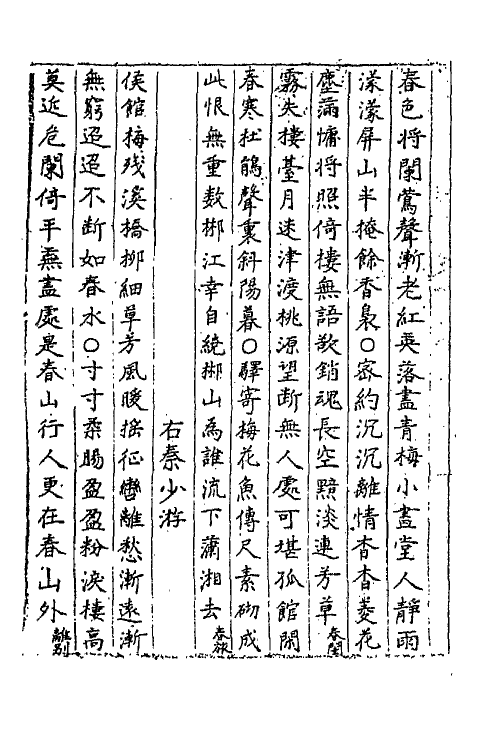 春色将闌鶯聲漸老紅英落盡青梅小畫堂人靜雨
濛濛屏山半掩餘香裊○密約沉沉離情杳杳菱花
塵滿慵将照倚樓無語欲銷魂長空黯淡連芳草春閨
霧失樓臺月迷津渡桃源望断無人處可堪孤館閑
春寒杜鵑聲裏斜陽暮○驛寄梅花魚傳尺素砌成
此恨無重数郴江幸自繞郴山為誰流下瀟湘去春旅
右秦少游
侯館梅残溪橋柳細草芳風暖揺征轡離愁漸遠漸
無窮迢迢不断如春水○寸寸柔腸盈盈粉淚樓高
莫近危闌倚平蕪盡處是春山行人更在春山外離別